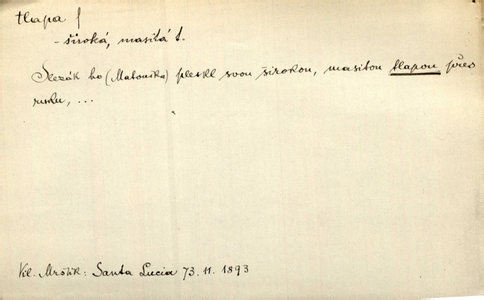 tlapa f
- široká, masitá t.
Slezák ho (Matouška) pleskl svou širokou, masitou tlapou přes
ruku, ...
Vil. Mrštík: Santa Lucia 73. 11. 1893